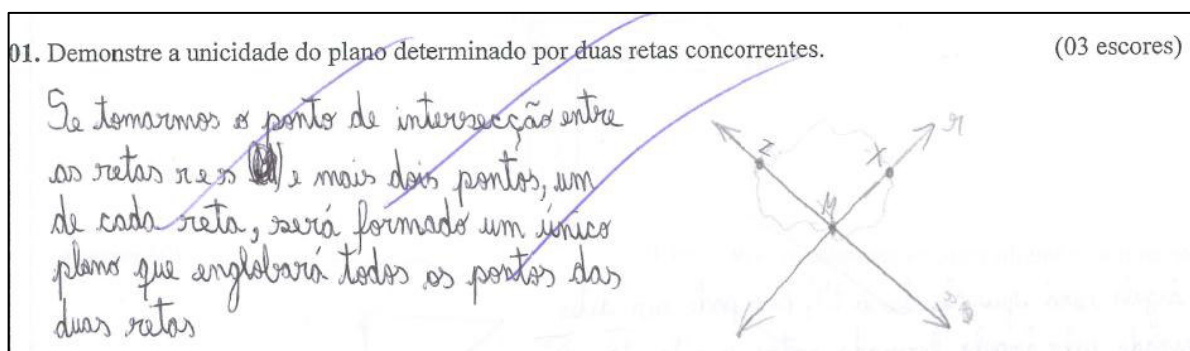 01. Demonstre a unicidade do plano determinado por duas retas concorrentes. (03 escores)
Se tomarmos o ponto de intersecção entre
as retas r e s e mais dois pontos, um
de cada reta, será formado um único
plano que englobará todos os pontos das
duas retas
r
Z X
M
s